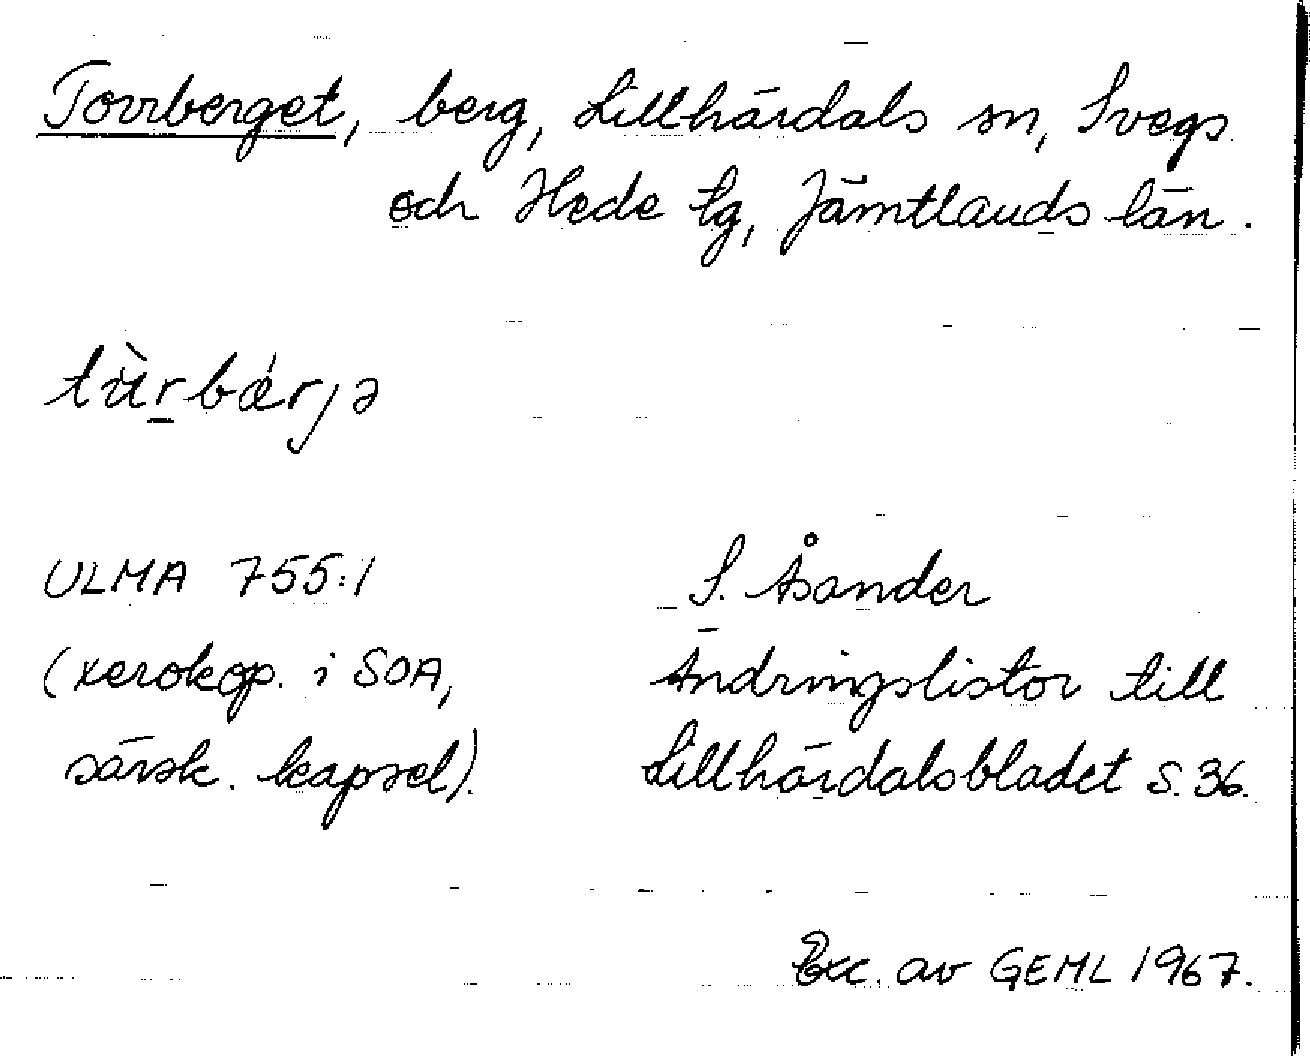 Torrberget, berg, Lillhärdals sn, Svegs
och Hede tg, Jämtlands län.
tùr̲bǽrjə
ULMA 755:1
S. Åsander
(xerokop. i SOA,
Ändringslistor till
särsk. kapsel).
Lillhärdalsbladet S. 36.
Exc. av GEML 1967.